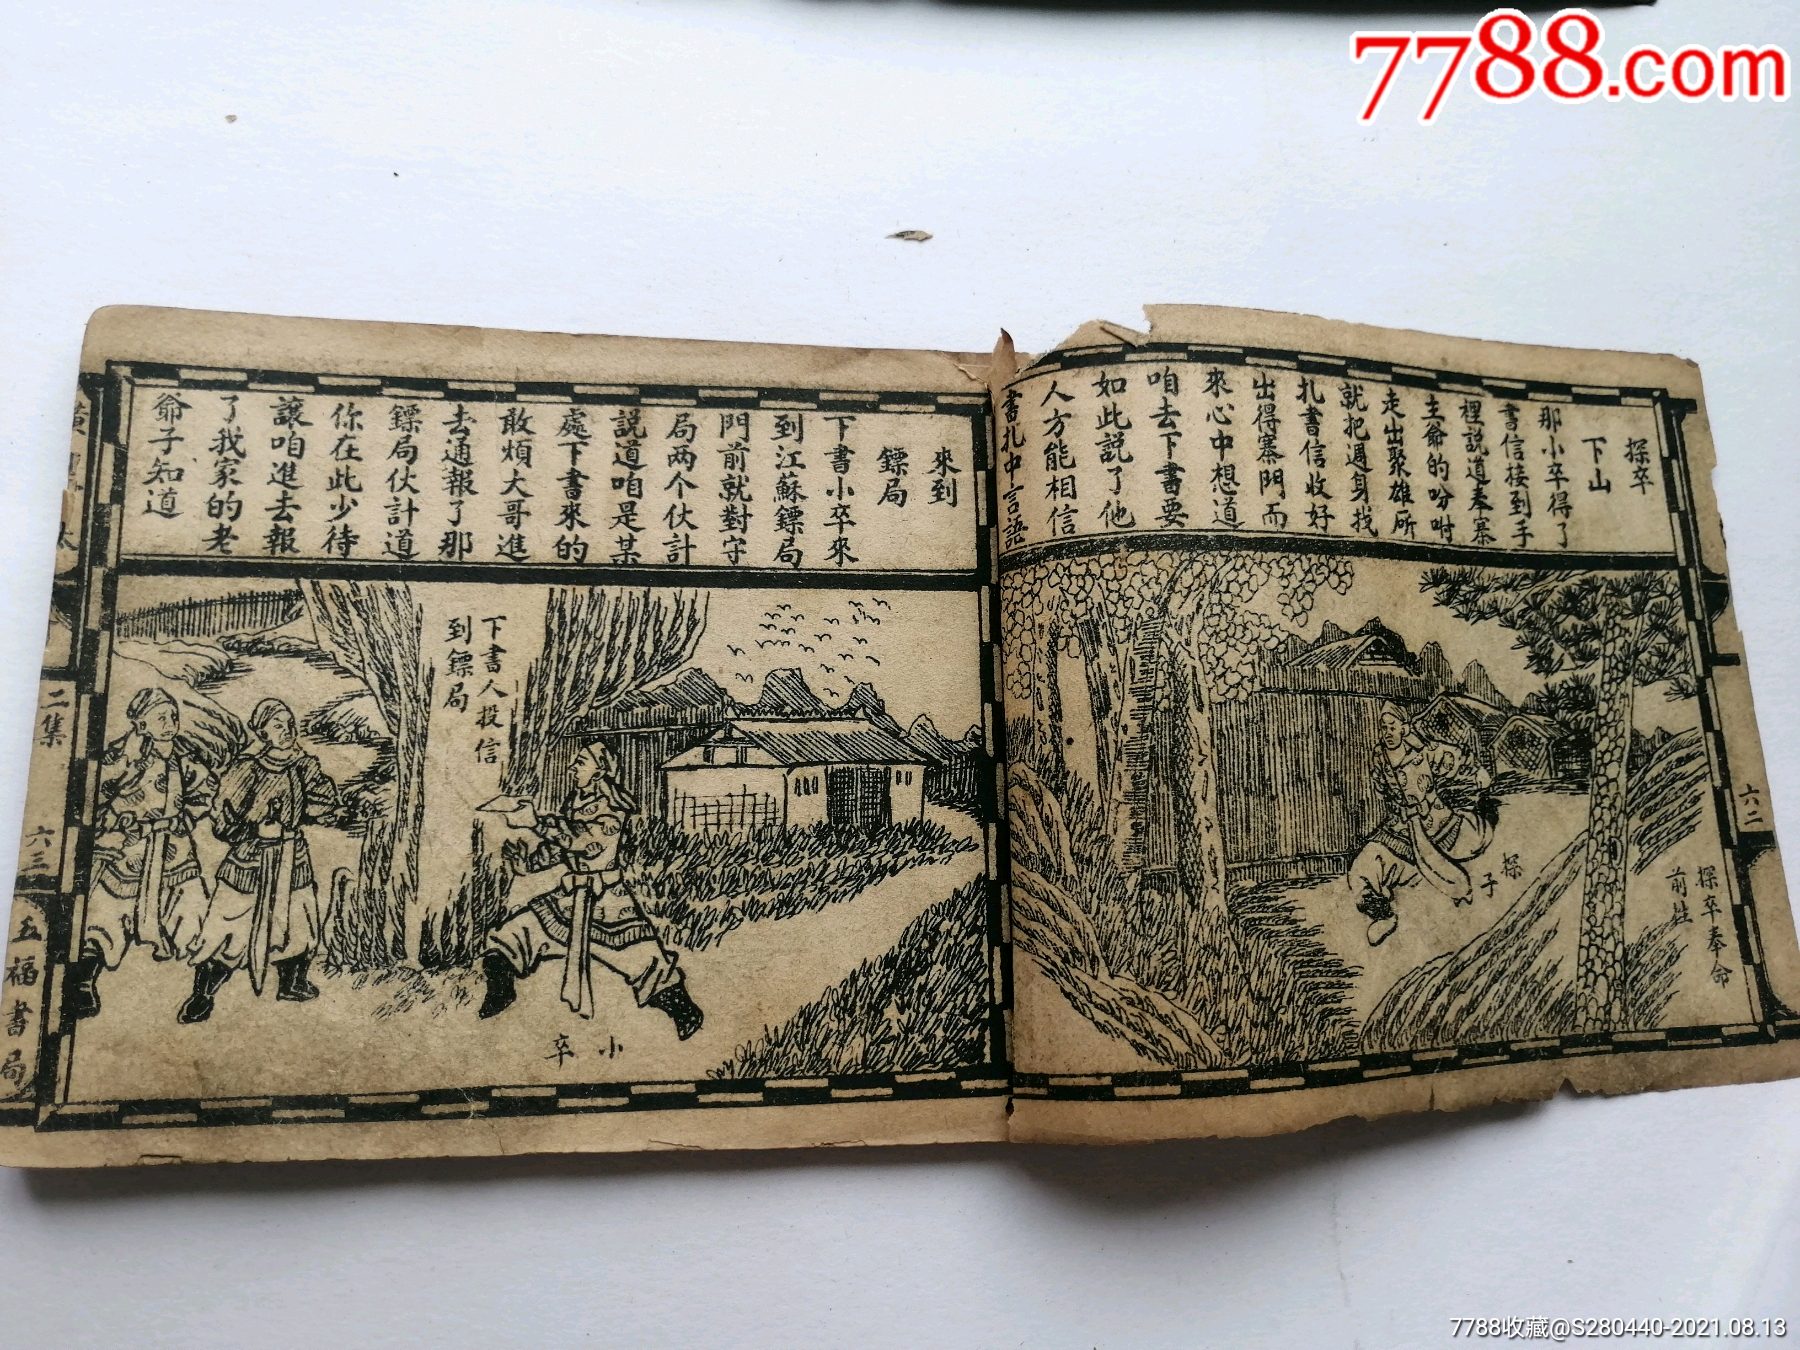 7788.com
探卒
下山
那小卒得了
書信接到手
裡說道奉寨
主爺的吩咐
走出聚雄所
就把遇身找
扎書信收好
出得寨門而
來心中想道
咱去下書要
如此說了他
人方能相信
書扎中言語
探子
探卒奉命
前往
六二
來到
鏢局
下書小卒來
到江蘇鏢局
門前就對守
局两个伙計
說道咱是某
處下書來的
敢煩大哥進
去通報了那
鏢局伙計道
你在此少待
讓咱進去報
了我家的老
爺子知道
下書人投信
到鏢局
小卒
二集
六三
五福書局
7788收藏@S280440-2021.08.13